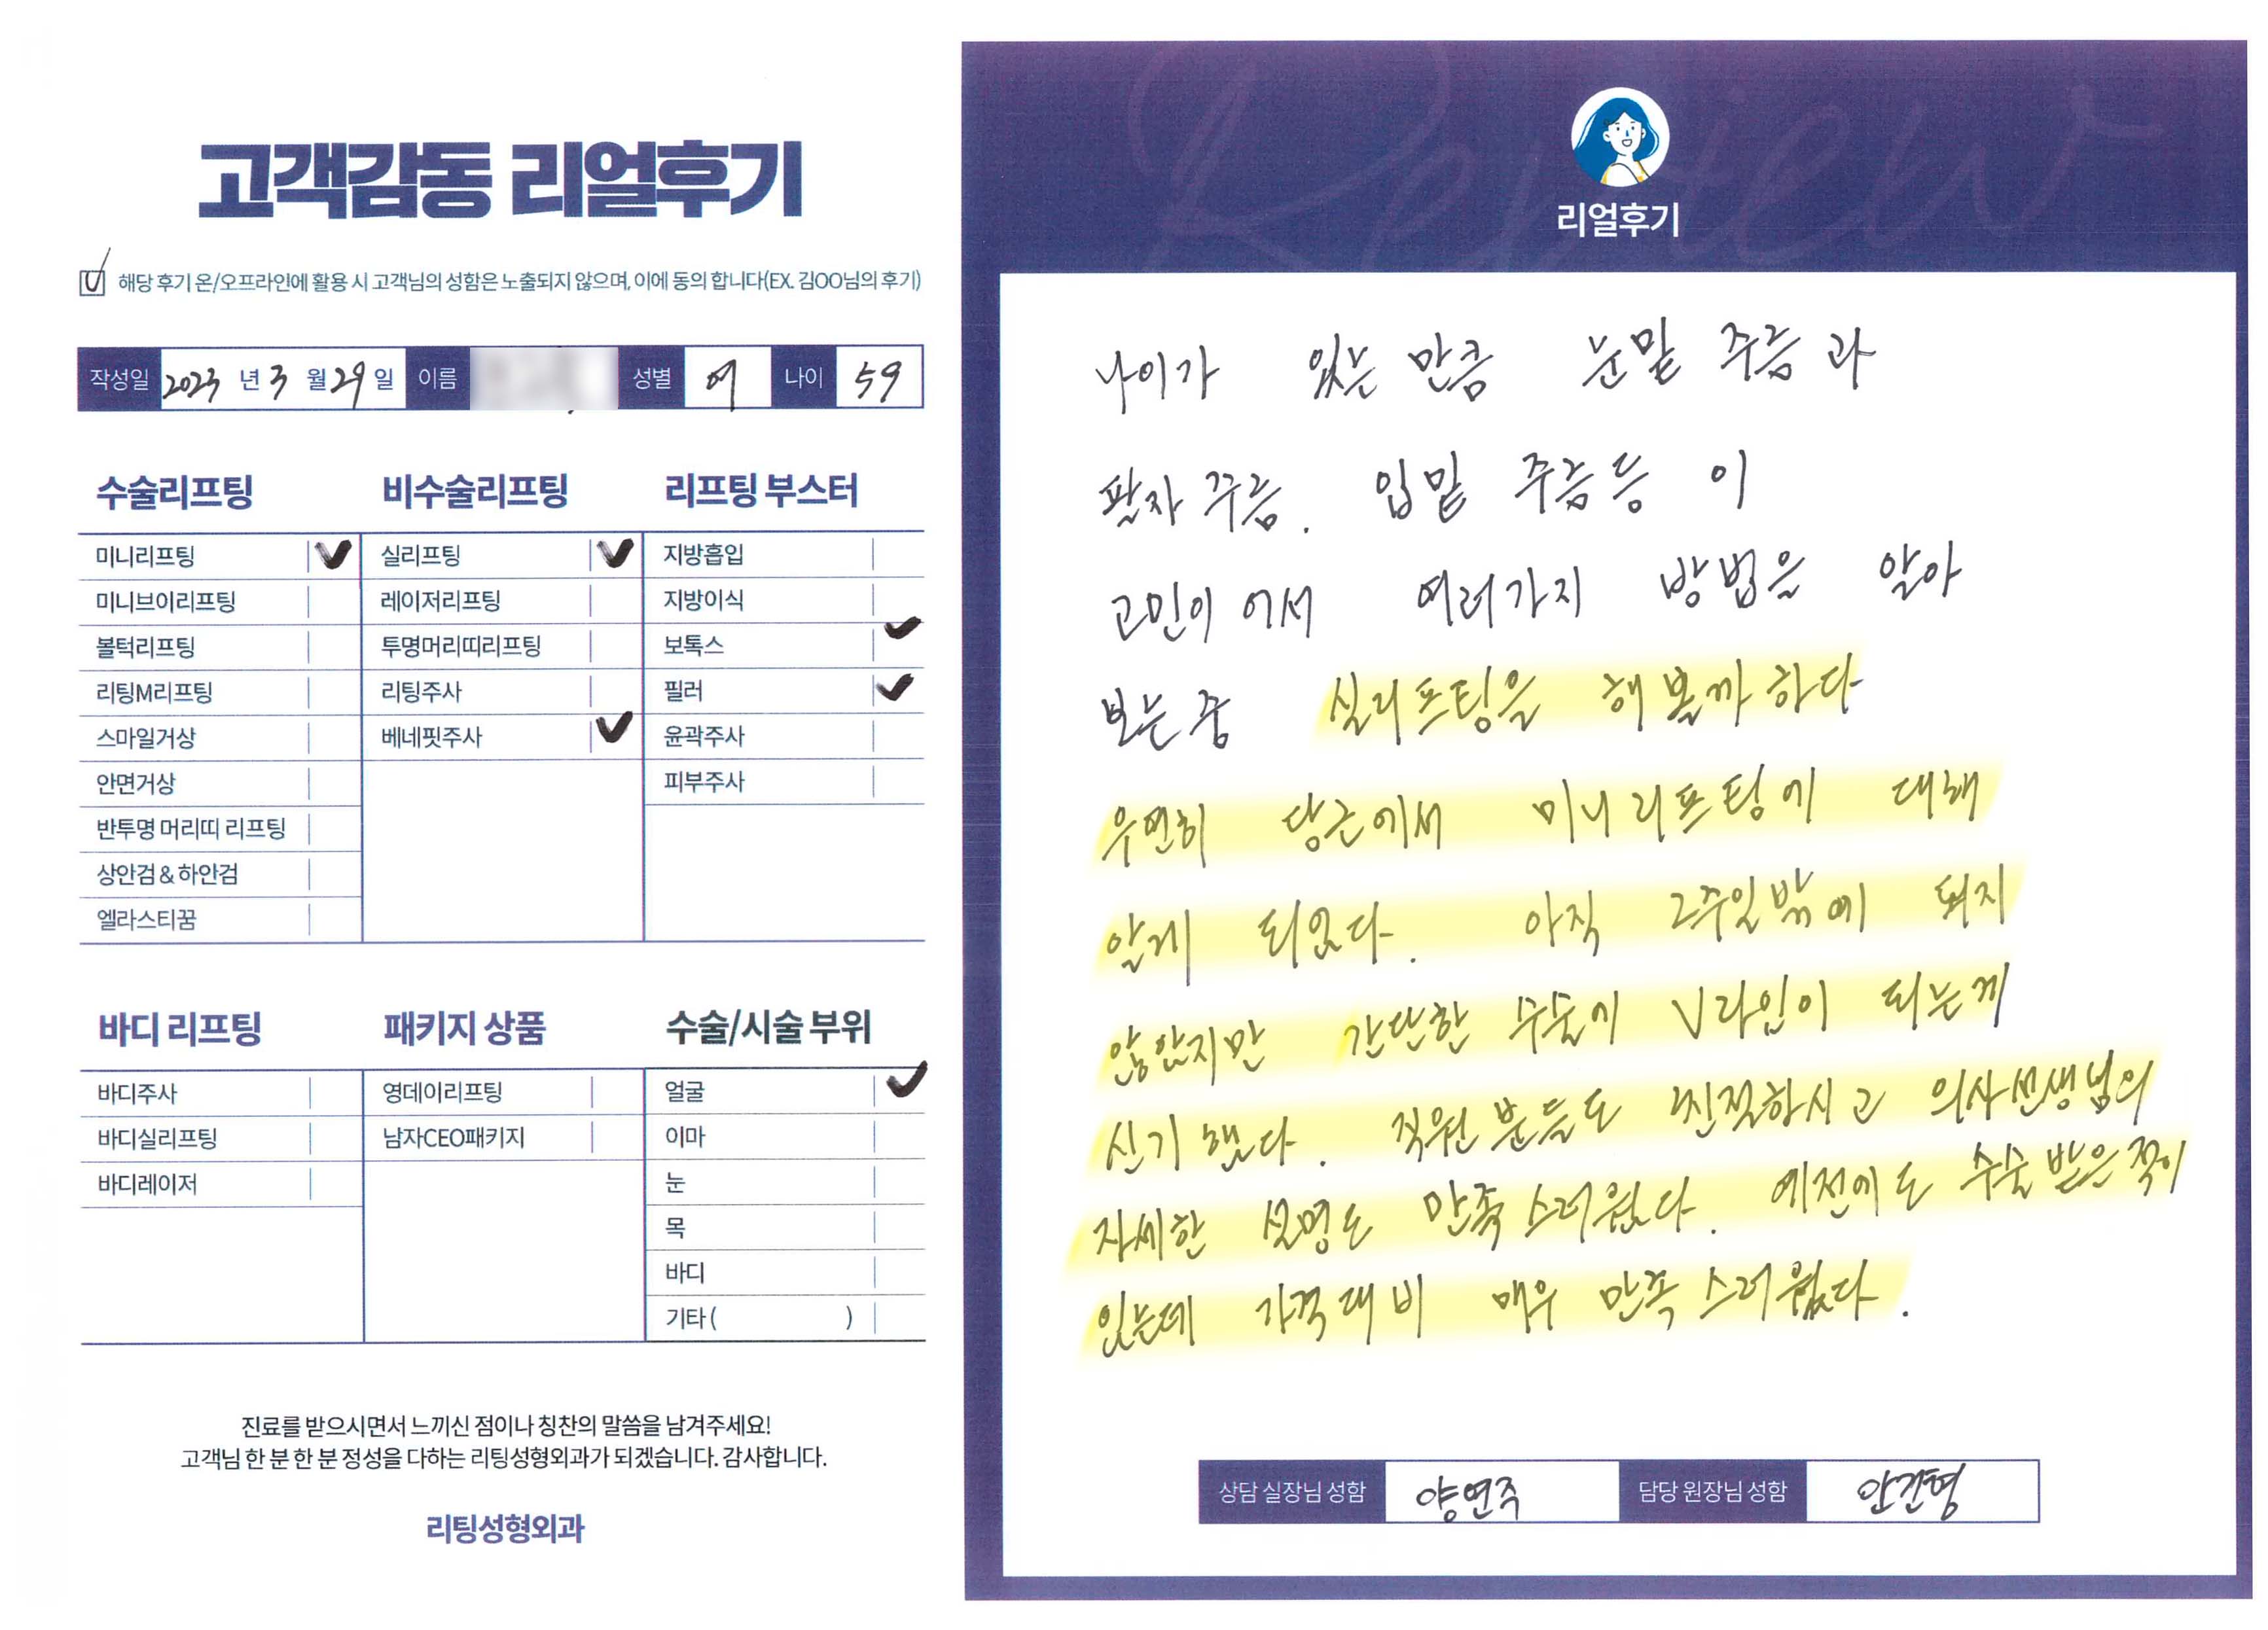 고객감동 리얼후기
해당 후기 온/오프라인에 활용 시 고객님의 성함은 노출되지 않으며, 이에 동의 합니다(EX. 김OO님의 후기)
작성일 2023 년 3 월 29 일 이름 성별 여 나이 59
수술리프팅
미니리프팅
미니브이리프팅
볼턱리프팅
리팅M리프팅
스마일거상
안면거상
반투명 머리띠 리프팅
상안검 & 하안검
엘라스티꿈
비수술리프팅
실리프팅
레이저리프팅
투명머리띠리프팅
리팅주사
베네핏주사
리프팅 부스터
지방흡입
지방이식
보톡스
필러
윤곽주사
피부주사
바디 리프팅
바디주사
바디실리프팅
바디레이저
패키지 상품
영데이리프팅
남자CEO패키지
수술/시술 부위
얼굴
이마
눈
목
바디
기타 ( )
진료를 받으시면서 느끼신 점이나 칭찬의 말씀을 남겨주세요!
고객님 한 분 한 분 정성을 다하는 리팅성형외과가 되겠습니다. 감사합니다.
리팅성형외과
Review
리얼후기
나이가 있는 만큼 눈밑 주름과
팔자 주름. 입밑 주름등 이
고민이 어서 여러가지 방법을 알아
보는중 실리프팅을 해볼까하다
우연히 당근에서 미니리프팅에 대해
알게 되었다. 아직 2주일밖에 돼지
않았지만 간단한 수술에 V라인이 되는게
신기했다. 직원분들도 친절하시고 의사선생님의
자세한 설명도 만족스러웠다. 예전에도 수술받은적이
있는데 가격대비 매우 만족스러웠다.
상담 실장님 성함 양연주 담당 원장님 성함 안건형